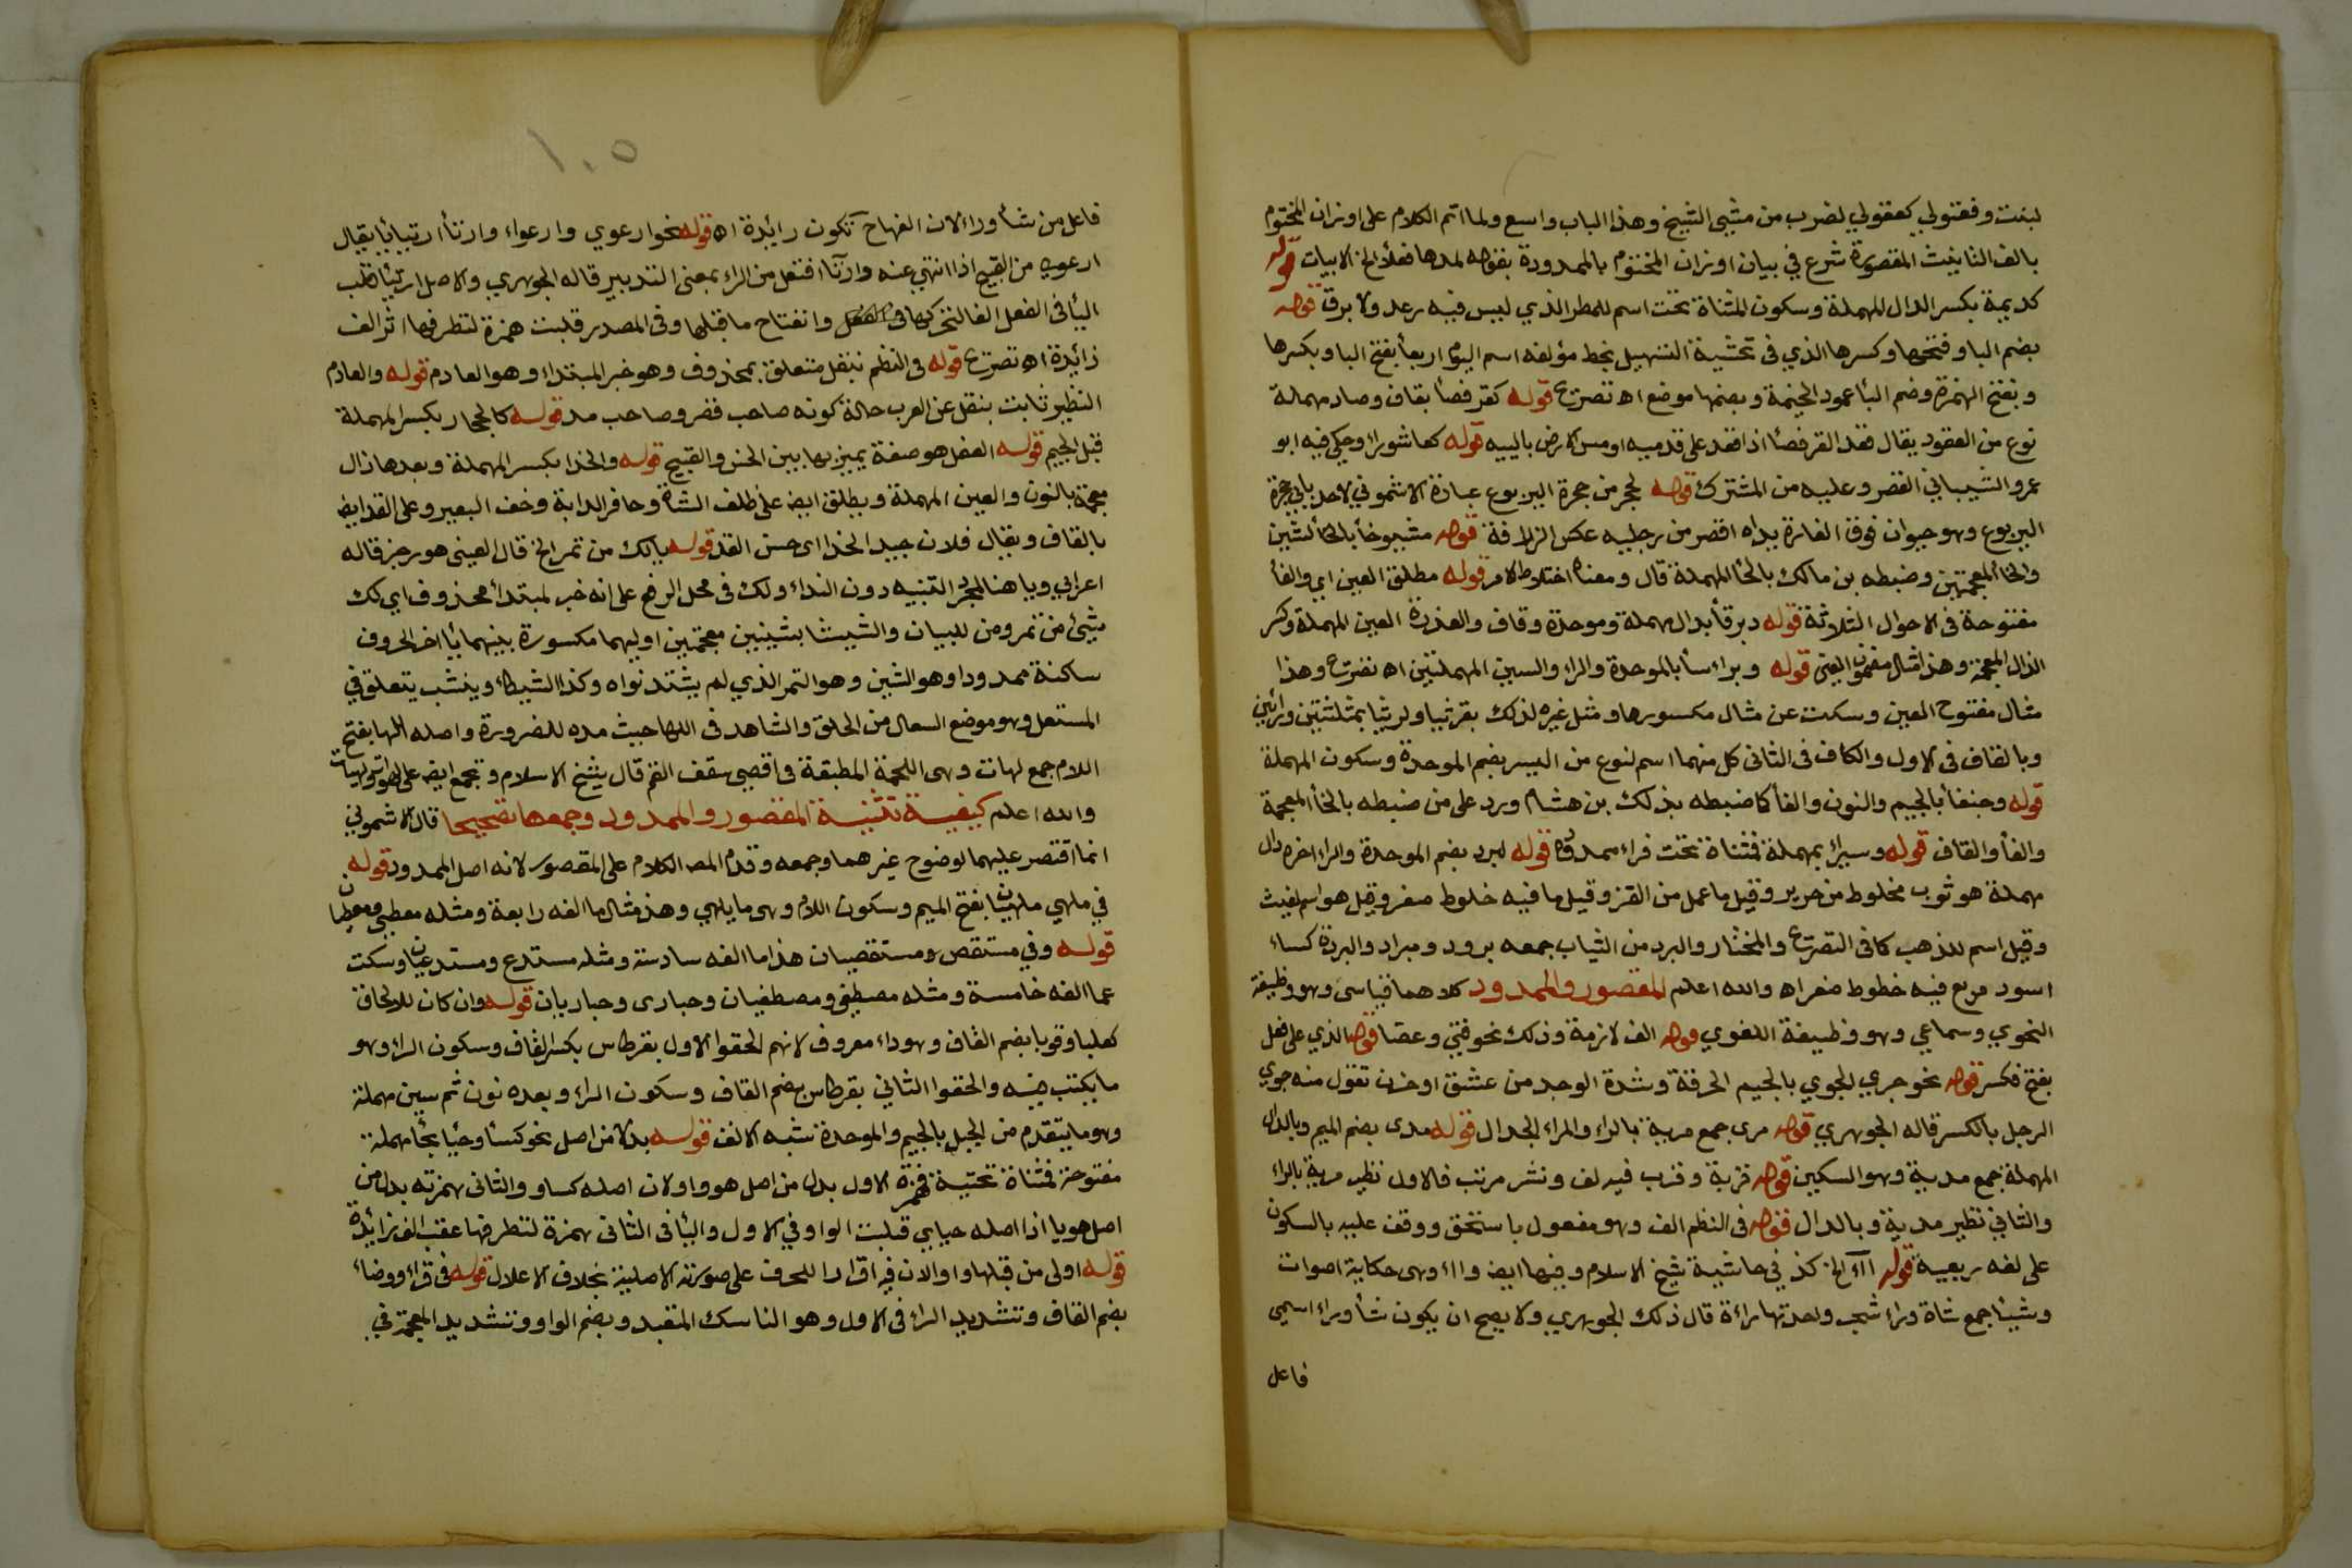 لبنت وفعتولي كعقولي لضرب من مشى الشيخ وهذا الباب واسع ولما اتم الكلام على اوزان المختوم
بالف التانيث المقصورة شرع في بيان اوزان المختوم بالممدودة بقوله لمدها فعلأ الخ الابيات قوله
كديمة بكسر الدال المهملة وسكون المثناة تحت اسم للمطر الذي ليس فيه رعد ولا برق قوله
بضم البا وفتحها وكسرها الذي فى تحشية التسهيل بخط مؤلفه اسم اليوم اربعأ بفتح البا وبكسرها
وبفتح الهمزة وضم البأ عمود الخيمة وبضمها موضع اه تصريح قوله كقرفصأ بقاف وصاد مهملة
نوع من العقود يقال قعد القرفصأ اذا قعد على قدميه او مس الارض باليييه قوله كعاشوراء وحكي فيه ابو
عمرو الشيبانى القصر وعليه من المشترك قوله لحجر من حجرة اليربوع عبارة الاشموني لاحد بابي حجرة
اليربوع وهو حيوان فوق الفارة يداه اقصر من رجليه عكس الزرافة قوله مشيوخأ بالخأ لشين
والخأ المعجمتين وضبطه بن مالك بالحأ المهملة قال ومعناه اختلاط الامر قوله مطلق العين اي والفأ
مفتوحة فى الاحوال الثلاثة قوله دبرقأ بدال مهملة وموحدة وقاف والعذرة العين المهملة وكسر
الذال المعجمة وهذا مثال مضموم العين قوله وبراسأ بالموحدة والراء والسين المهملتين اه تصريح وهذا
مثال مفتوح العين وسكت عن مثال مكسورها ومثل غيره لذلك بقرثيا وكريثا بمثلثتين ورائين
وبالقاف فى الاول والكاف فى الثانى كل منهما اسم لنوع من البسر بضم الموحدة وسكون المهملة
قوله وجنفأ بالجيم والنون والفأ كما ضبطه بذلك بن هشام ورد على من ضبطه بالخأ المعجمة
والفأ والقاف قوله وسيراء بمهملة فمثناة تحت فراء ممدودة قوله لبرد بضم الموحدة والراء اخره دال
مهملة هو ثوب مخلوط من حرير وقيل ما عمل من القز وقيل ما فيه خطوط صفر وقيل هو اسم لغيث
وقيل اسم للذهب كما فى التصريح والمختار والبرد من الثياب جمعه برود ومبراد والبردة كساء
اسود مربع فيه خطوط صفر اه والله اعلم المقصور والممدود كلاهما قياسى وهو وظيفة
النحوي وسماعي وهو وظيفة اللغوي قوله الف لازمة وذلك نحو فتى وعصا قوله الذي على فعل
بفتح فكسر قوله نحو جرى الجوي بالجيم الحرقة وشدة الوجد من عشق او حزن تقول منه جوي
الرجل بالكسر قاله الجوهري قوله مرى جمع مرية بالراء والمراء الجدال قوله مدى بضم الميم وبالدال
المهملة جمع مدية وهو السكين قوله قربة وقرب فيه لف ونشر مرتب فالاول نظير مرية بالراء
والثاني نظير مدية وبالدال قوله فى النظم الف وهو مفعول باستحق ووقف عليه بالسكون
على لغه ربيعية قوله اآء الخ كذ في حاشية شيخ الاسلام وفيها ايض وااء وهى حكاية اصوات
وشيئا جمع شاة وراء شجر واحدتها راءة قال ذلك الجوهري ولا يصح ان يكون شأ وراء اسمى
فاعل
١٠٥
فاعل من شأ وراء لان الفهاح تكون زائدة اه قوله نحو ارعوي وارعواء وارتأ ارتيايأ يقال
ارعوى من القبيح اذا انتهي عنه وارتأ افتعل من الراء بمعنى التدبير قاله الجوهري والاصل ارتيأ قلب
اليأ فى الفعل الفا لتحركها وانفتاح ما قبلها وفى المصدر قلبت همزة لتطرفها اثر الف
زائدة اه تصريح قوله فى النظم بنقل متعلق بمحذوف وهو خبر المبتداء وهو العادم قوله والعادم
النظير ثابت بنقل عن العرب حالة كونه صاحب قصر وصاحب مد قوله كالحجار بكسر المهملة
قبل الجيم قوله العقل هو صفة يميز بها بين الحسن والقبيح قوله والحذا بكسر المهملة وبعدها ذال
معجمة بالنون والعين المهملة ويطلق ايض على ظلف الشاة وحافر الدابة وخف البعير وعلى القد ايض
بالقاف ويقال فلان جيد الحذا اى حسن القد قوله يالك من تمر الخ قال العينى هو رجز قاله
اعرابي ويا هنا لمجرد التنبيه دون النداء ولك فى محل الرفع على انه خبر لمبتدأ محذوف اي لك
شيئ من تمر ومن للبيان والشيشا بشينين معجمتين اوليهما مكسورة بينهما يأ اخر الحروف
ساكنة ممدودا وهو الشين وهو التمر الذي لم يشتد نواه وكذا الشيصاء وينشب يتعلق في
المستعل وهو موضع السعال من الحلق والشاهد فى اللها حيث مده للضرورة واصله اللها بفتح
اللام جمع لهات وهى اللحمة المطبقة فى اقصى سقف الفم قال شيخ الاسلام ويجمع ايض على لهوات ولهيات
والله اعلم كيفية تثنية المقصور والممدود وجمعها تصحيحا قال الاشموني
انما اقتصر عليهما لوضوح غيرهما وجمعه وقدم المص الكلام على المقصور لانه اصل الممدود قوله
في ملهي ملهيان بفتح الميم وسكون اللام وهى ما يلهي وهذ مثال ما الفه رابعة ومثله معطى ومعطيان
قوله وفي مستقصى ومستقصيان هذا ما الفه سادسة ومثله مستدعى ومستدعيان وسكت
عما الفه خامسة ومثله مصطفى ومصطفيان وحبارى وحباريان قوله وان كان للالحاق
كعلبا وقوبا بضم القاف وهو داء معروف لانهم الحقوا الاول بقرطاس بكسر القاف وسكون الراء وهو
ما يكتب فيه والحقوا الثاني بقرطاس بضم القاف وسكون الراء وبعده نون ثم سين مهملة
وهو ما يتقدم من الجبل بالجيم والموحدة شبه الانف قوله بدلا من اصل نحو كسأ وحيا بحأ مهملة
مفتوحة فمثناة تحتية فهمزة الاول بدل من اصل هو واو لان اصله كساو والثانى همزته بدل من
اصل هو يا اذ اصله حيايي قبلبت الواو في الاول واليأ فى الثانى همزة لتطرفها عقب الف زائدة
قوله اولى من قبلها واوا لان فيه اقرارا للحرف على صورته الاصلية بخلاف الاعلال قوله فى قراء ووضاء
بضم القاف وتشديد الراء فى الاول وهو الناسك المتعبد وبضم الواو وتشديد المعجمة في